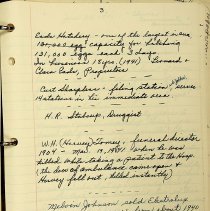 3
Eads Hatchery - one of the largest in area
100000 egg capacity for hatching
131,000 eggs each 3 days.
In business 18 yrs. (1941) Bernard &
Clara Eads, Proprietors
Curt Sharpless - filling station, serves
14 stations in the immediate area.
H. R. Stalcup, Druggist
W. H. (Harvey) Toney, funeral director
1904 - Mar. 19, 1941 when he was
killed while taking a patient to the Hosp.
(the door of ambulance came open &
Harvey fell out, killed instantly)
Melvin Johnson sold Electrolux
about 1940